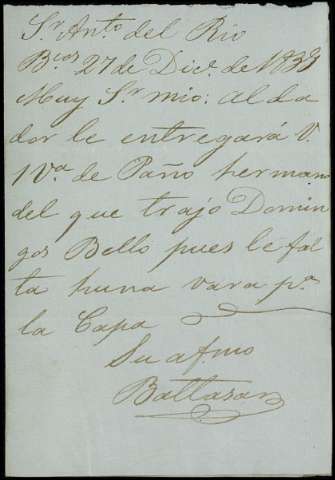 Sr. Anto. del Rio
Bcos 27 de Dice. de 1839
Muy Sr. mio: al da
dor le entregará V.
1 Va. de Paño herman
del que trajo Domin
gos Bello pues le fal
ta huna vara pa.
la Capa
Su afmo
Baltasar